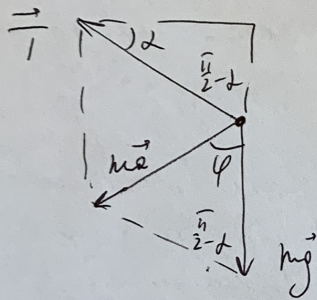 T⃗
α
π/2-α
ma⃗
φ
π/2-α
mg⃗